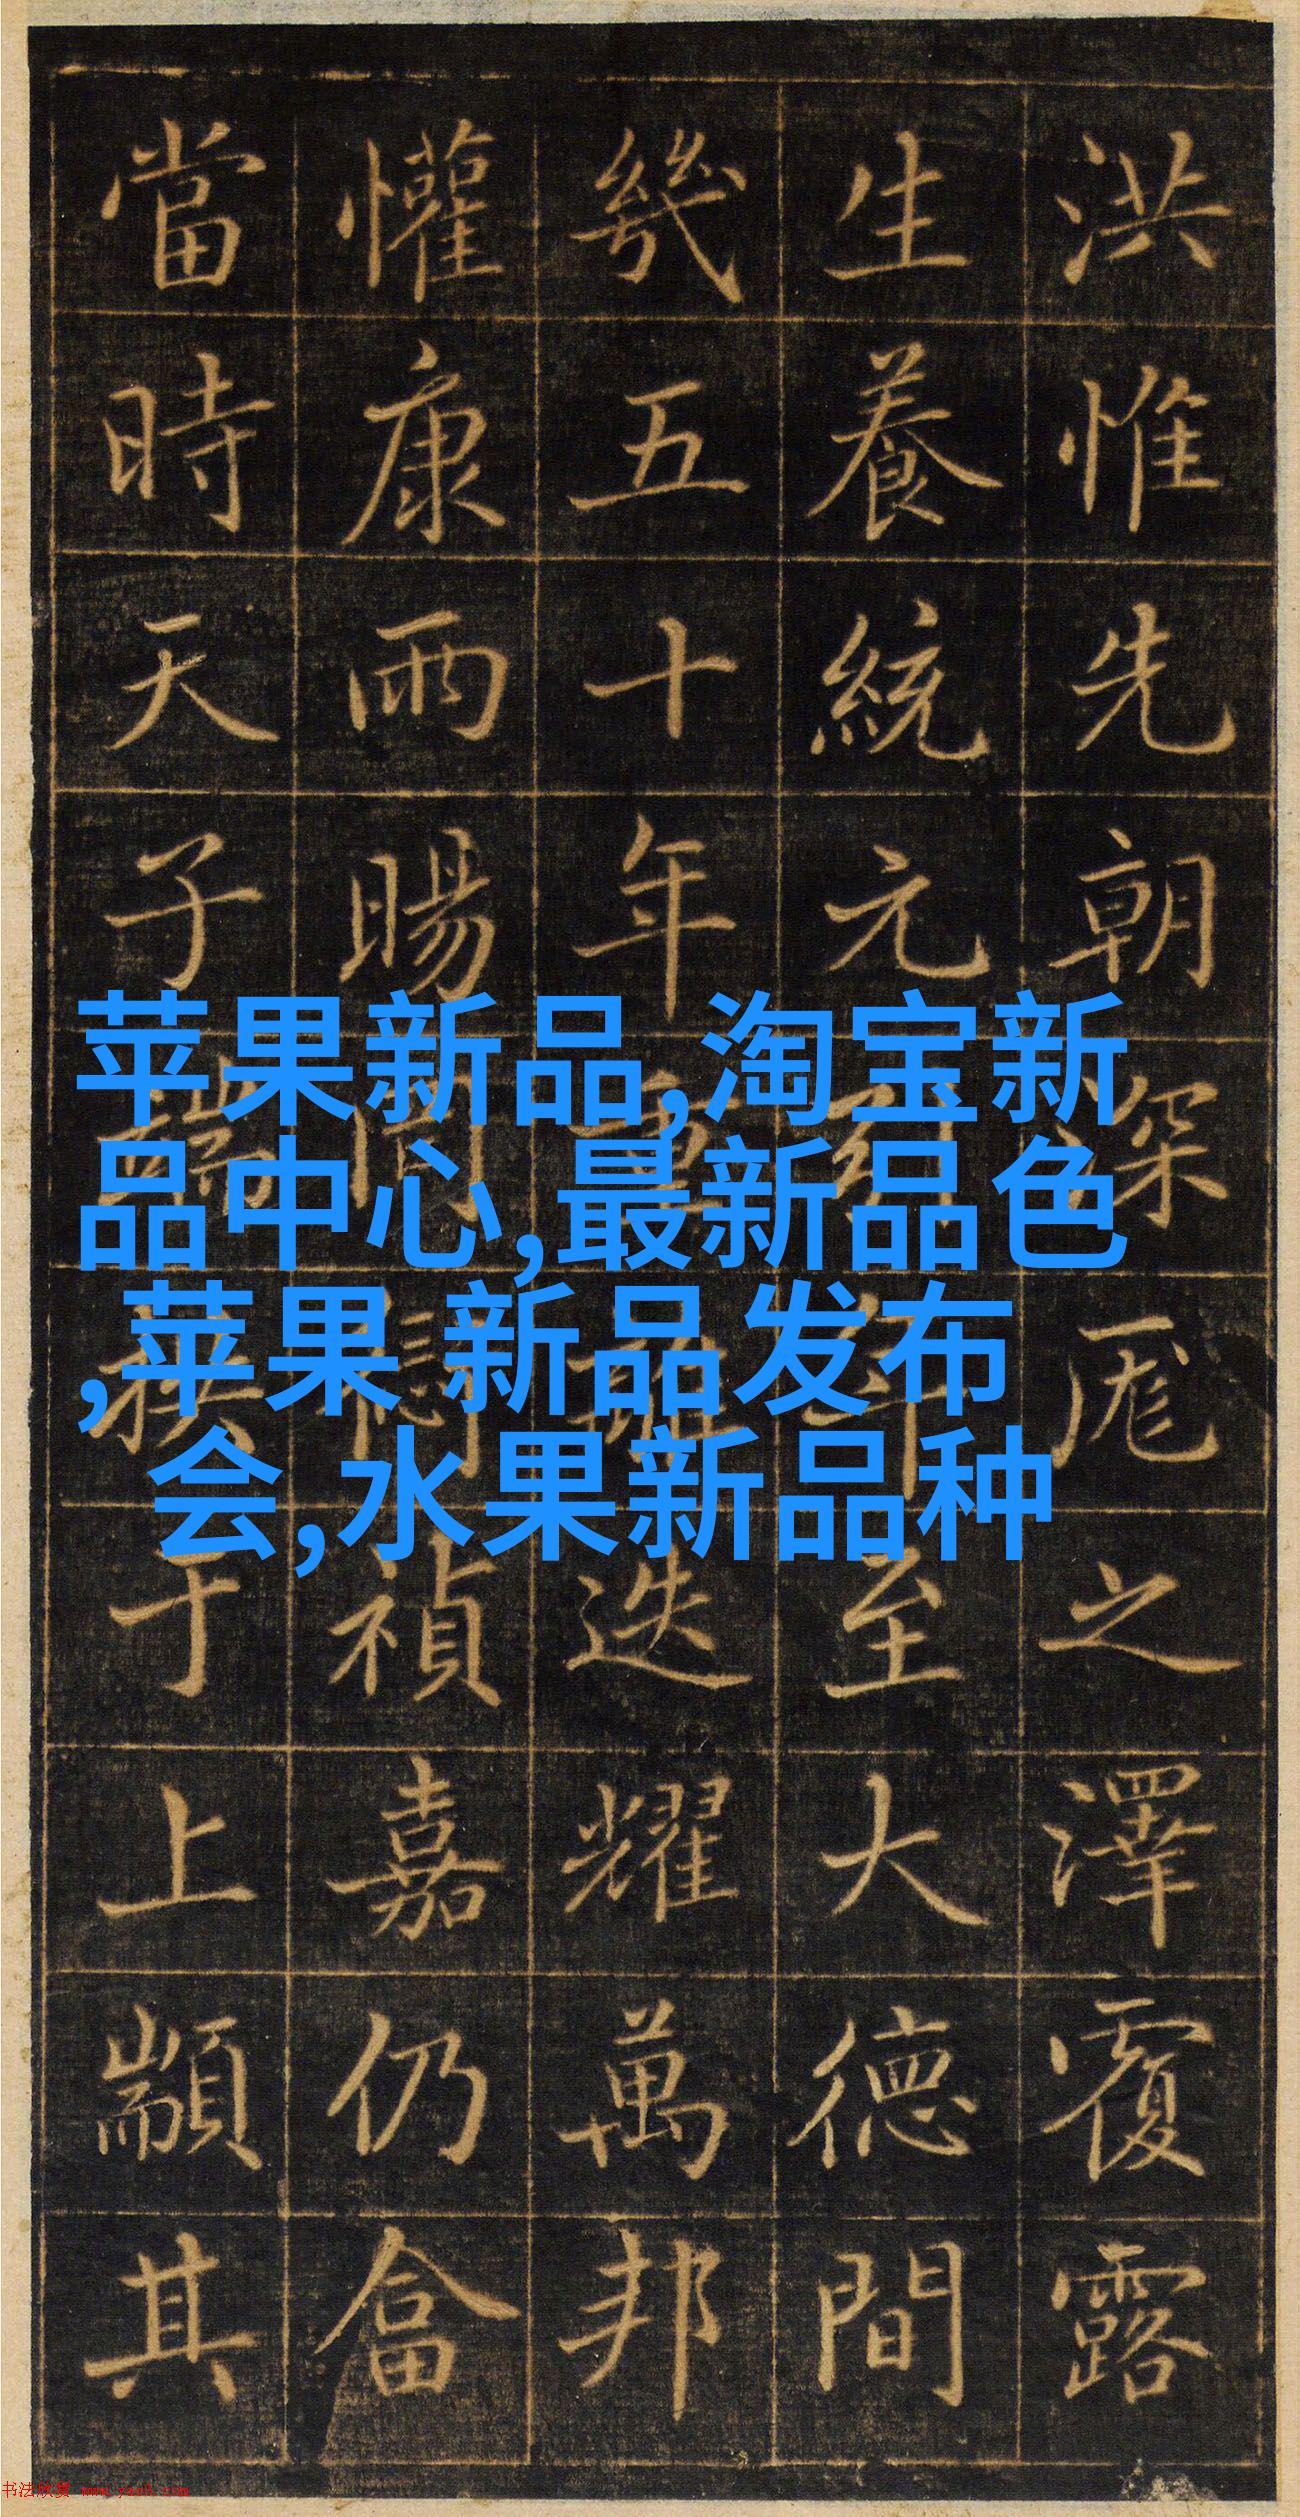 洪惟先朝深厖之澤覆露
生養統元至大德間
幾五十年重熙迭耀萬邦
懽康雨暘禎嘉仍畣
當時天子端拱于上顒其
苹果新品,淘宝新
品中心,最新品色
,苹果 新品发布
会,水果新品种
书法欣赏 www.yac8.com